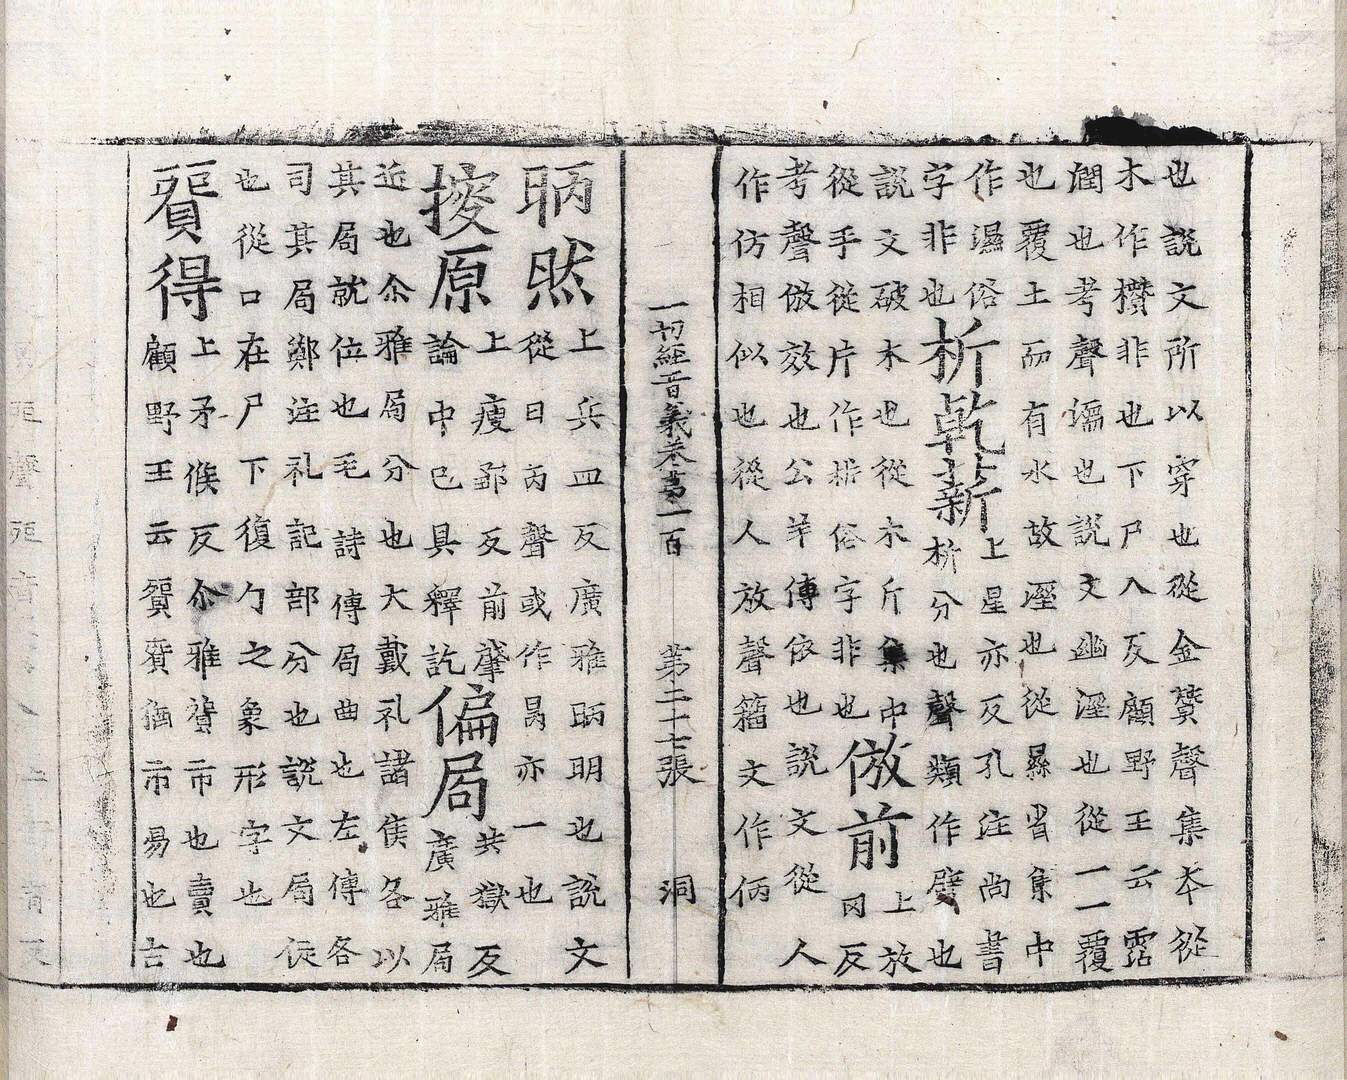 也說文所以穿也從金贊聲集本從
木作櫕非也下尸入反顧野王云霑
潤也考聲濡也說文幽溼也從一一覆
也覆土而有水故溼也從㬎省集中
作濕俗
字非也
析乾薪
上星亦反孔注尚書
析分也聲類作𣂪也
說文破木也從木斤集中
從手從片作枂俗字非也
倣前
上放
罔反
考聲倣效也公羊傳依也說文從人
作仿相似也從人放聲籀文作俩
一切經音義卷第一百　第二十七張　洞
昞然
上兵皿反廣雅昞明也說文
從日丙聲或作昺亦一也
按原
上瘦鄒反前肇
論中已具釋訖
偏局
共獄反
廣雅局
近也尒雅局分也大戴礼諸侯各以
其局就位也毛詩傳局曲也左傳各
司其局鄭注礼記部分也說文局促
也從口在尸下復勹之象形字也
貿得
上矛候反尒雅貿市也賣也
顧野王云貿賣猶市易也古